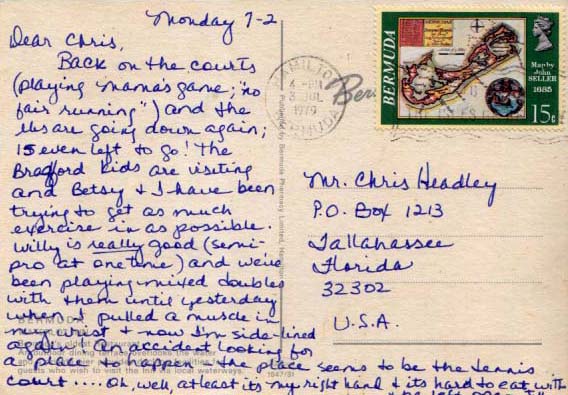 Monday 7-2
Dear Chris,
Back on the courts
(playing Mama's game; "no
fair running") and the
lbs are going down again;
15 even left to go! The
Bradford kids are visiting
and Betsy & I have been
trying to get as much
exercise in as possible.
Willy is really good (semi-
pro at one time) and we've
been playing mixed doubles
with them until yesterday
when I pulled a muscle in
my wrist & now I'm side-lined
again! An accident looking for
a place to happen & the place seems to be the tennis
court .... Oh, well, at least its my right hand & its hard to eat with
BERMUDA
Map by
John
SELLER
1685
15c
HAMILTON
PM
JUL
1979
BERMUDA
Mr. Chris Headley
P.O. Box 1213
Tallahassee
Florida
32302
U.S.A.
BERMUDA
dining terrace overlooks the water
guests who wish to visit the Inn via local waterways.
Published by Bermuda Pharmacy Limited,